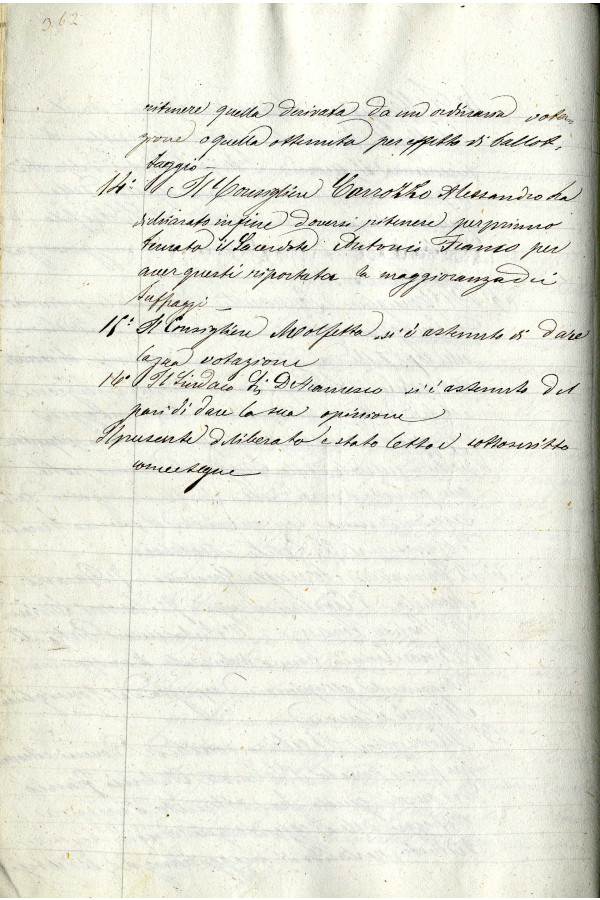 362
ritenere quella derivata da un ordinaria vota-
zione o quella ottenuta per effetto di ballot-
taggio —
14° Il Consigliere Carrozzo Alessandro ha
dichiarato infine doversi ritenere per primo
ternato il Sacerdote Antonio Franco per
aver questi riportata la maggioranza dei
suffraggi —
15° Il Consigliere Molfetta si è astenuto di dare
la sua votazione
16° Il Sindaco De Francesco si è astenuto del
pari di dare la sua opinione
Il presente deliberato è stato letto e sottoscritto
come segue